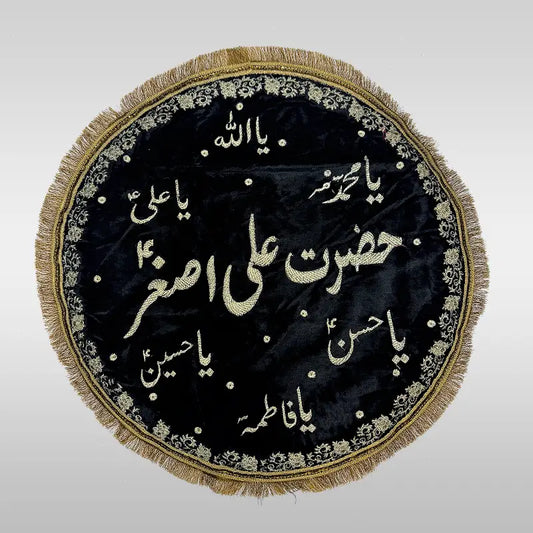 یا اللہ
یا محمدؐ
یا علیؑ
حضرت علی اصغرؑ
یا حسنؑ
یا حسینؑ
یا فاطمہؑ